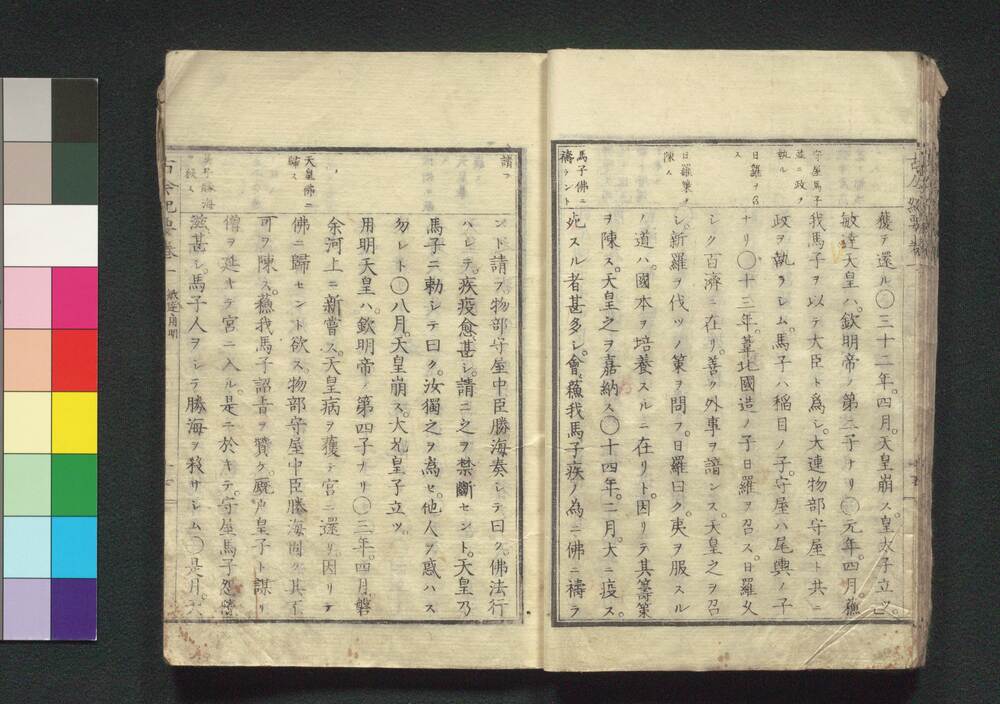 獲テ還ル○三十二年。四月。天皇崩ス。皇太子立ツ。
敏達天皇ハ。欽明帝ノ第二子ナリ○元年。四月。蘓
我馬子ヲ以テ大臣ト爲シ。大連物部守屋ト共ニ
政ヲ執ラシム。馬子ハ稲目ノ子。守屋ハ尾輿ノ子
ナリ○十三年。葦北國造ノ子日羅ヲ召ス。日羅久
シク百濟ニ在リ。善ク外事ヲ諳ンス。天皇之ヲ召
シ。新羅ヲ伐ツノ策ヲ問フ。日羅曰ク。夷ヲ服スル
ノ道ハ。國本ヲ培養スルニ在リト。因リテ其籌策
ヲ陳ス。天皇之ヲ嘉納ス○十四年。二月。大ニ疫ス。
死スル者甚多シ。會蘓我馬子疾ノ為ニ佛ニ禱ラ
守屋馬子
並ニ政ヲ
執ル
日羅ヲ召
ス
日羅策ヲ
陳ス
馬子佛ニ
禱ラント
請フ
ント請フ。物部守屋中臣勝海奏シテ曰ク。佛法行
ハレテ。疾疫愈甚シ。請ニ之ヲ禁斷セント。天皇乃
馬子ニ勅シテ曰ク。汝獨之ヲ為セ。他人ヲ惑ハス
勿レト○八月。天皇崩ス。大兄皇子立ツ。
用明天皇ハ。欽明帝ノ第四子ナリ○三年。四月。磐
余河上ニ新嘗ス。天皇病ヲ獲テ宮ニ還リ。因リテ
佛ニ歸セント欲ス。物部守屋中臣勝海固ク其不
可ヲ陳ス。蘓我馬子詔旨ヲ賛ク。厩戸皇子ト謀リ
僧ヲ延キテ宮ニ入ル。是ニ於キテ。守屋馬子怨隙
滋甚シ。馬子人ヲシテ勝海ヲ殺サシム○是月。
天皇佛ニ
歸ス
敏達用明